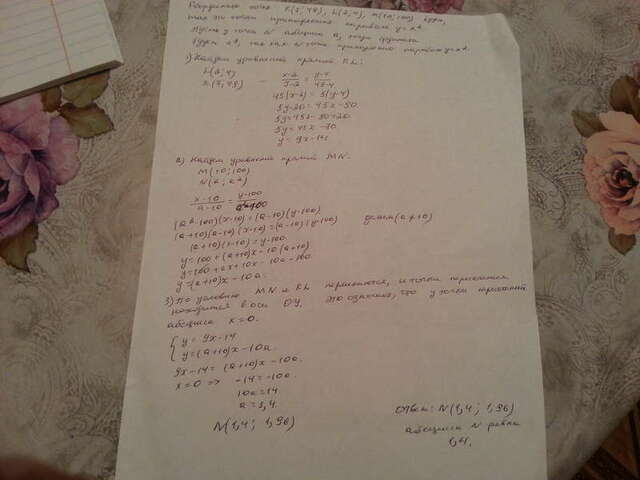 Рассмотрим точки K(7, 49), L(2, 4), M(10, 100)
так же точки принадлежат параболе y=x²
Пусть у точки N абсцисса a, тогда ордината
будет a², так как N тоже принадлежит параболе y=x².
1) Найдем уравнение прямой KL:
L(2; 4)
K(7, 49)
45(x-2) = 5(y-4)
5y-20 = 45x-90
5y = 45x-90+20
5y = 45x-70
y = 9x-14
2) Найдем уравнение прямой MN.
M(10; 100)
N(a; a²)
(x-10)/(a-10) = (y-100)/(a²-100)
(a²-100)(x-10) = (a-10)(y-100)
(a+10)(a-10)(x-10) = (a-10)(y-100) делим (a≠10)
(a+10)(x-10) = y-100
y = 100+(a+10)x-10(a+10)
y = 100+ax+10x-10a-100
y = (a+10)x-10a.
3) По условию MN и KL пересекаются, и точка пересечения
находится в оси OY. Это означает, что у точки пересечений
абсцисса x=0.
{ y = 9x-14
y = (a+10)x-10a.
9x-14 = (a+10)x-10a.
x=0 => -14 = -10a.
10a = 14
a = 1,4.
N(1,4; 1,96)
Ответ: N(1,4; 1,96)
абсцисса N равна
1,4.